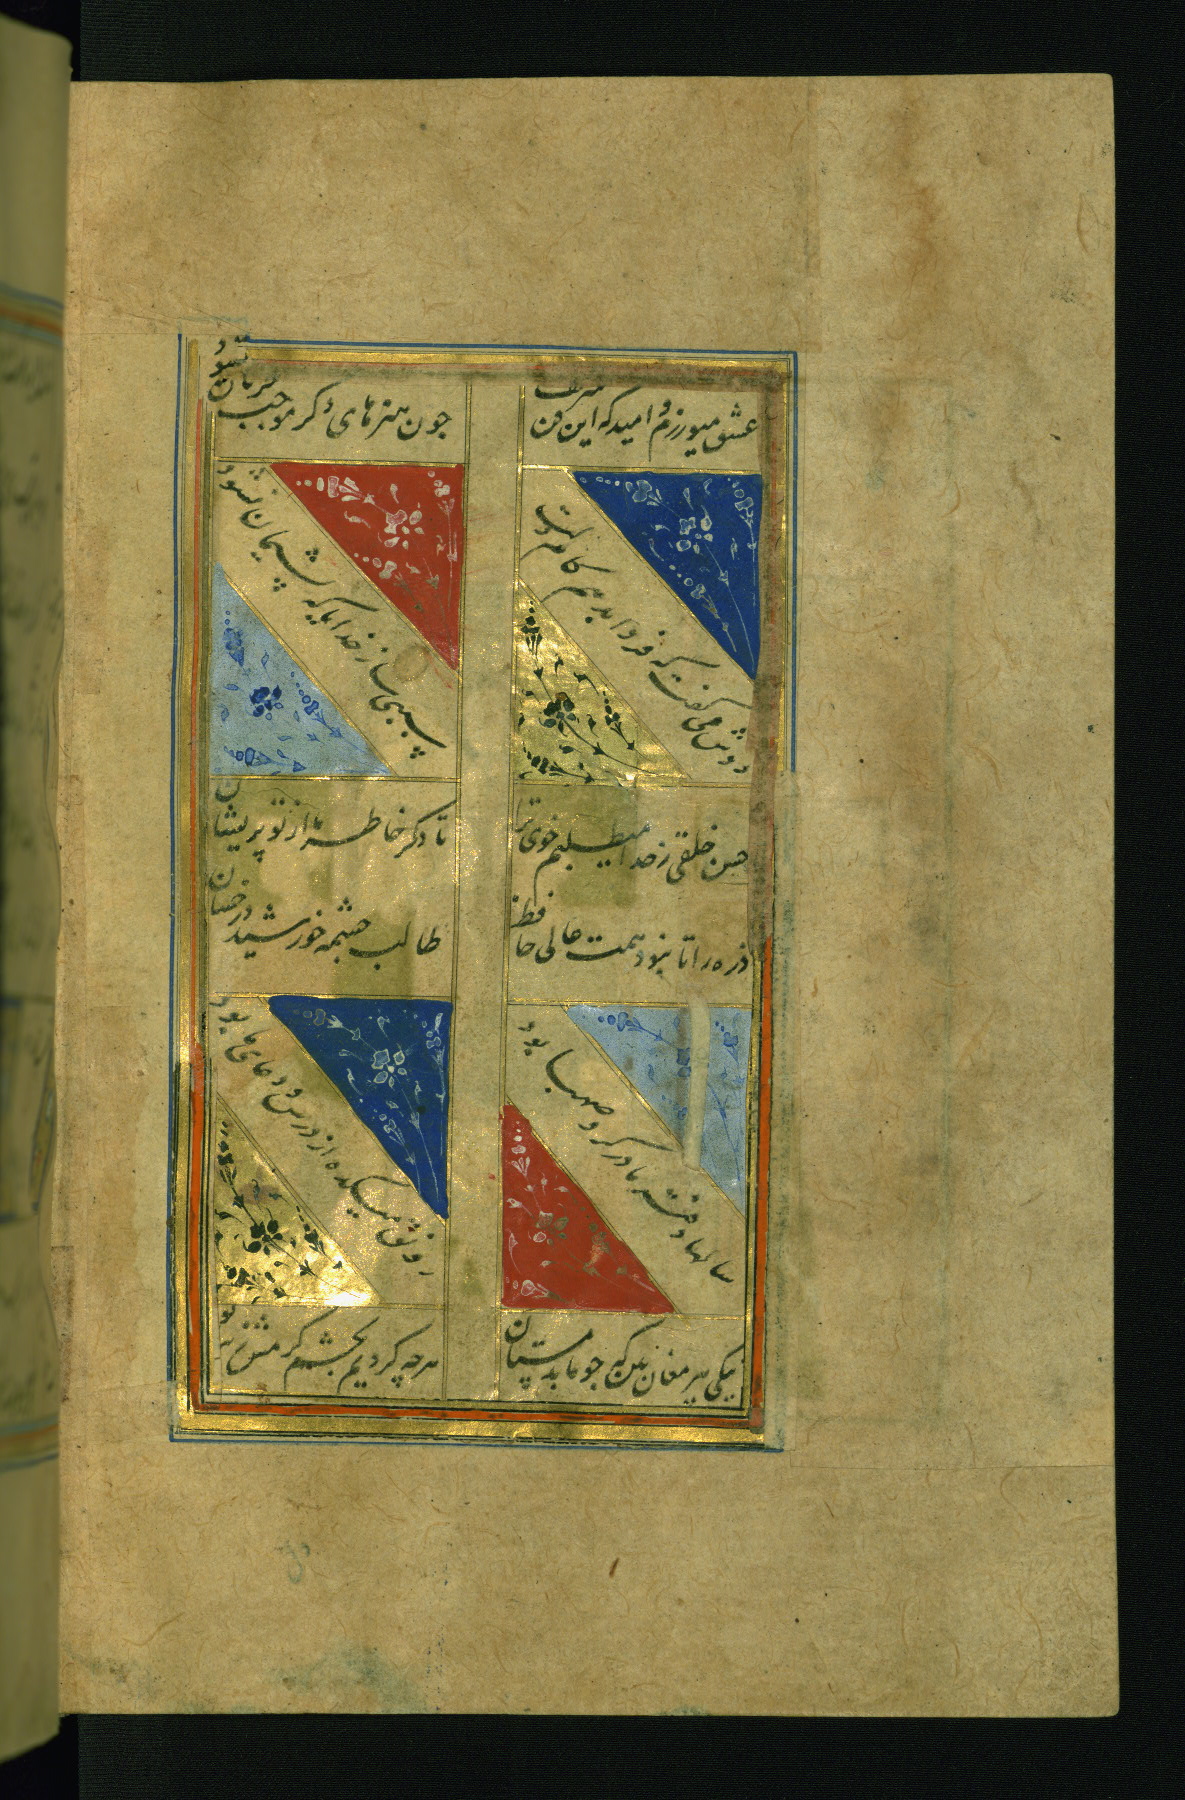 عشق میورزم و امید که این فن شریف
جون هنرهای دکر موجب حرمان نشود
دوش می گفت که فردا بدهم کام دلت
سببی ساز خدایا که پشیمان نشود
حسن خلقی ز خدا میطلبم خوی ترا
تا دکر خاطر ما از تو پریشان
ذره را تا نبود همت عالی حافظ
طالب چشمه خورشید درخشان
سالها دفتر ما در کرو صهبا بود
رونق میکده از درس و دعای ما بود
نیکی پیر مغان بین که جو ما بدمستان
هرجه کردیم بچشم کرمش زیبا بود